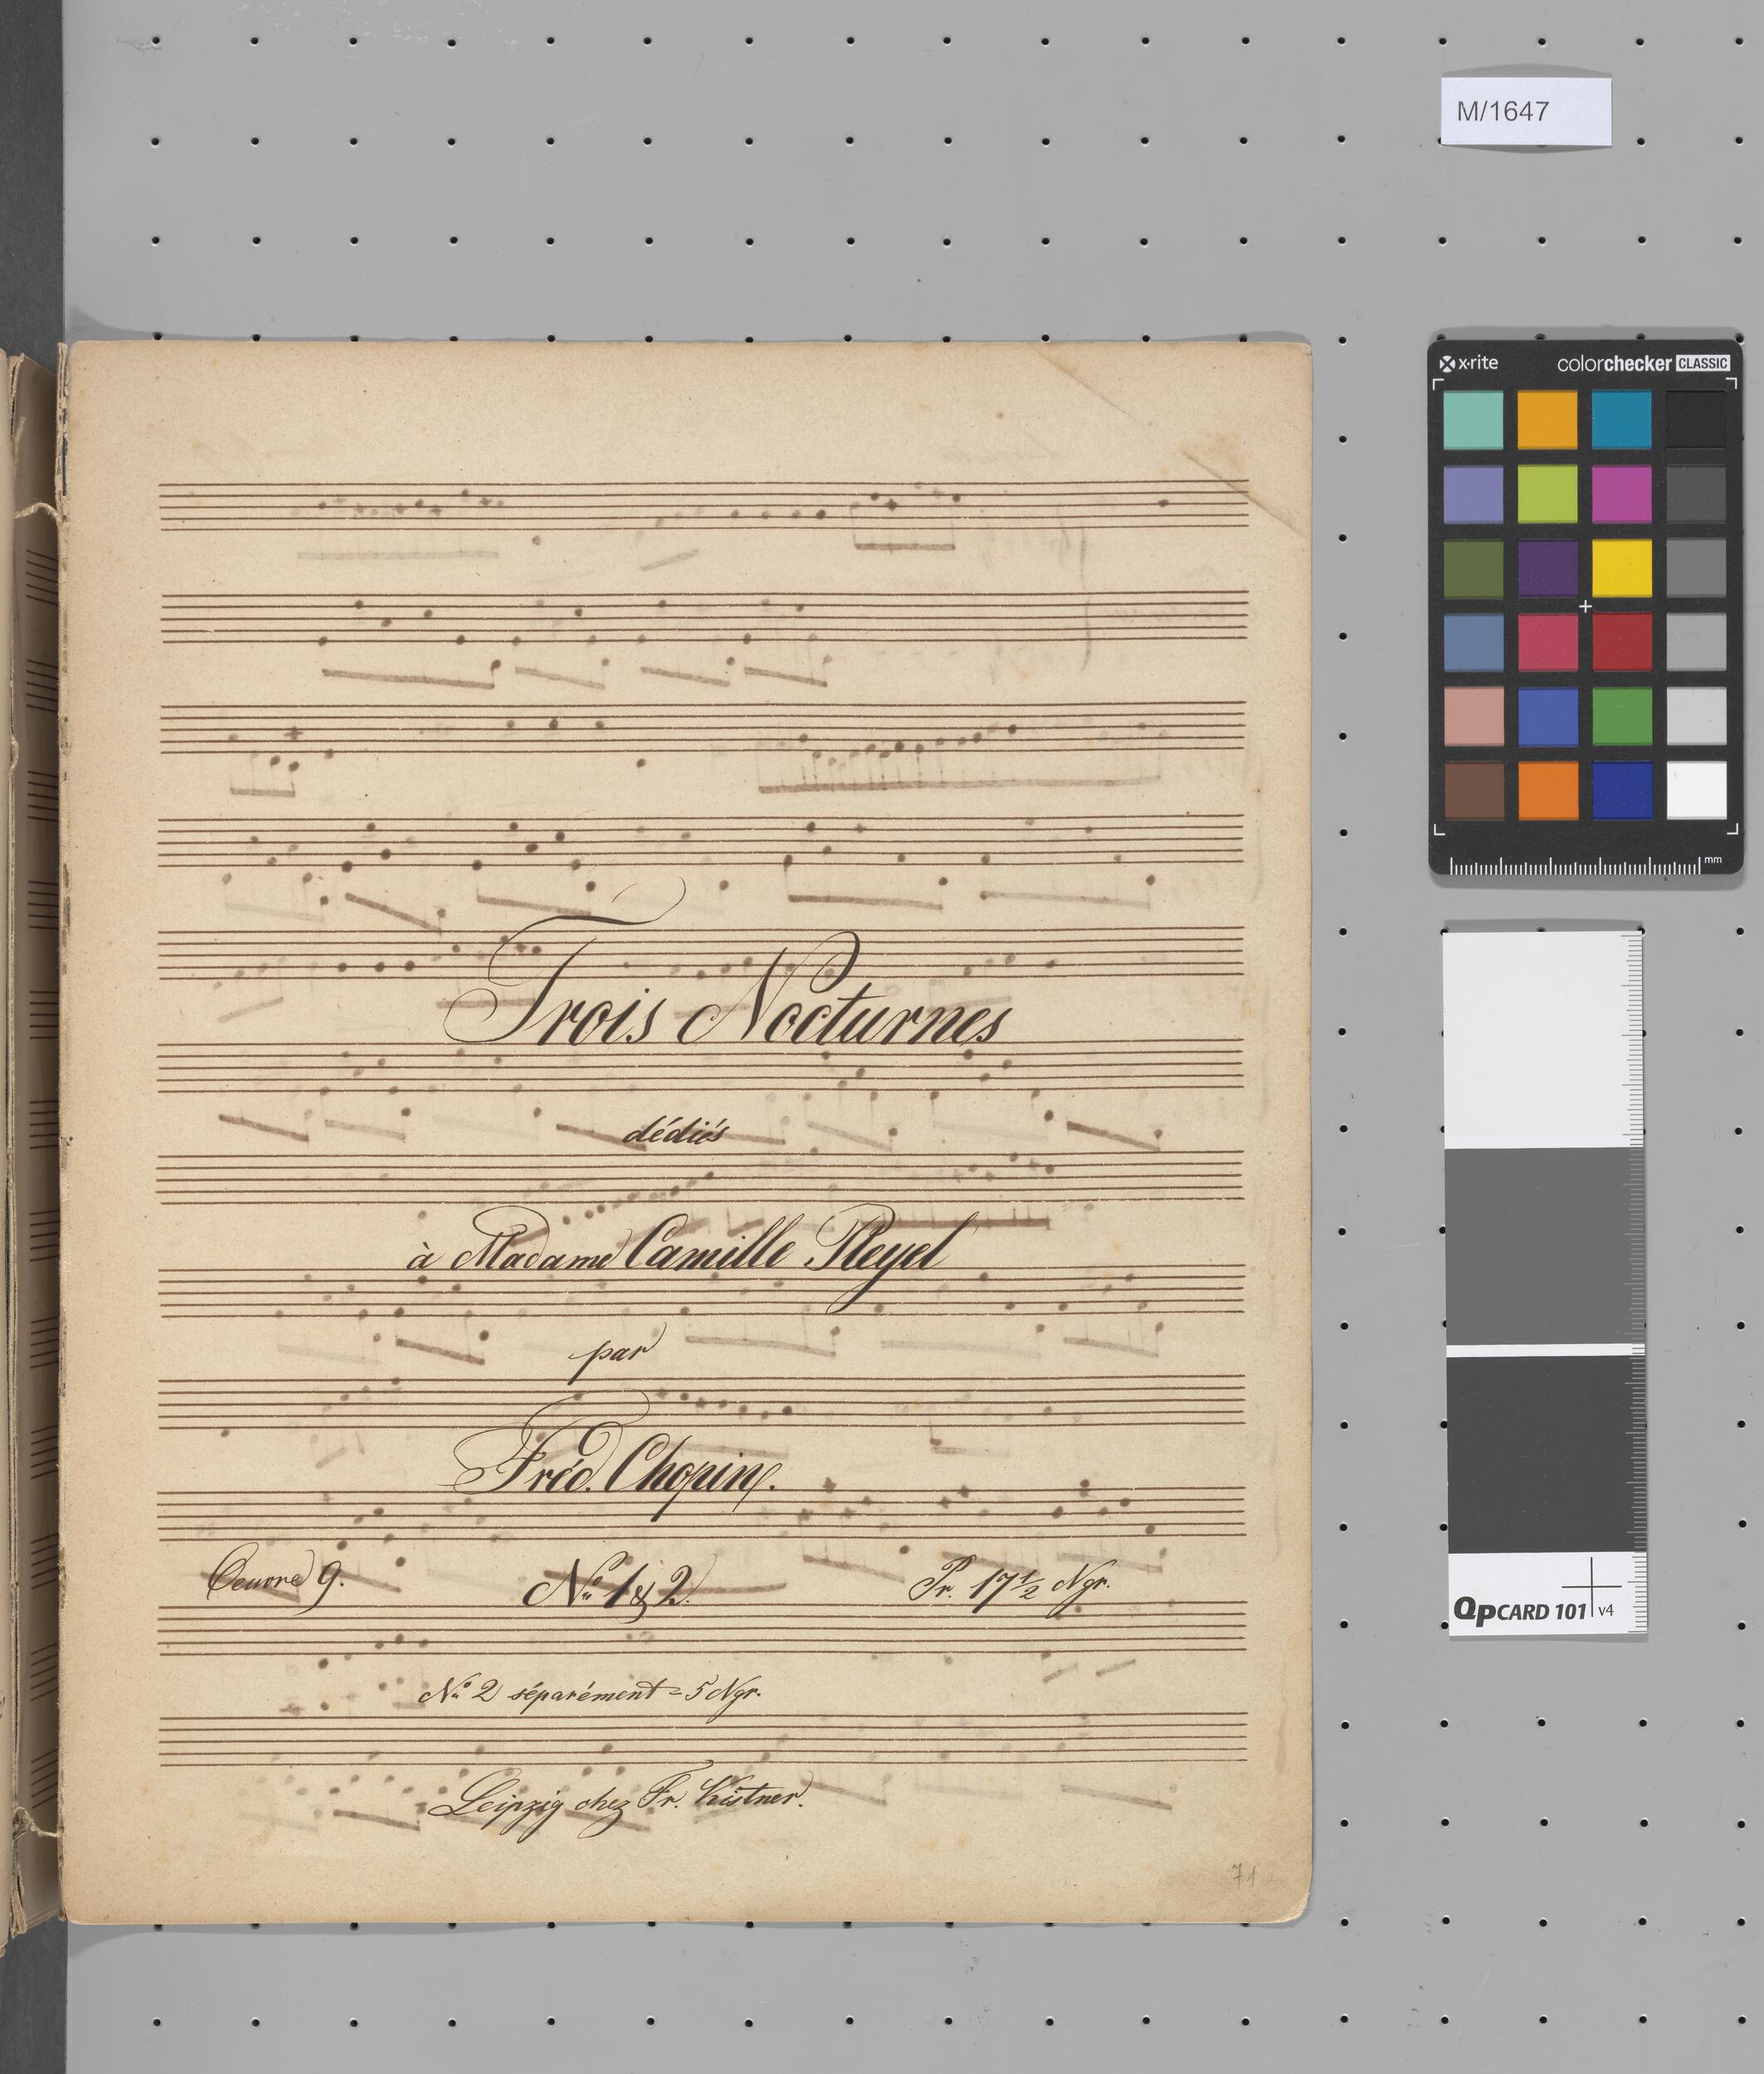 M/1647
x·rite colorchecker CLASSIC
mm
Trois Nocturnes
dédiés
à Madame Camille Pleyel
par
Fréd. Chopin.
Oeuvre 9. No. 1 & 2. Pr. 17 1/2 Ngr.
No. 2 séparément = 5 Ngr.
Leipzig chez Fr. Kistner.
71
QpCARD 101 v4